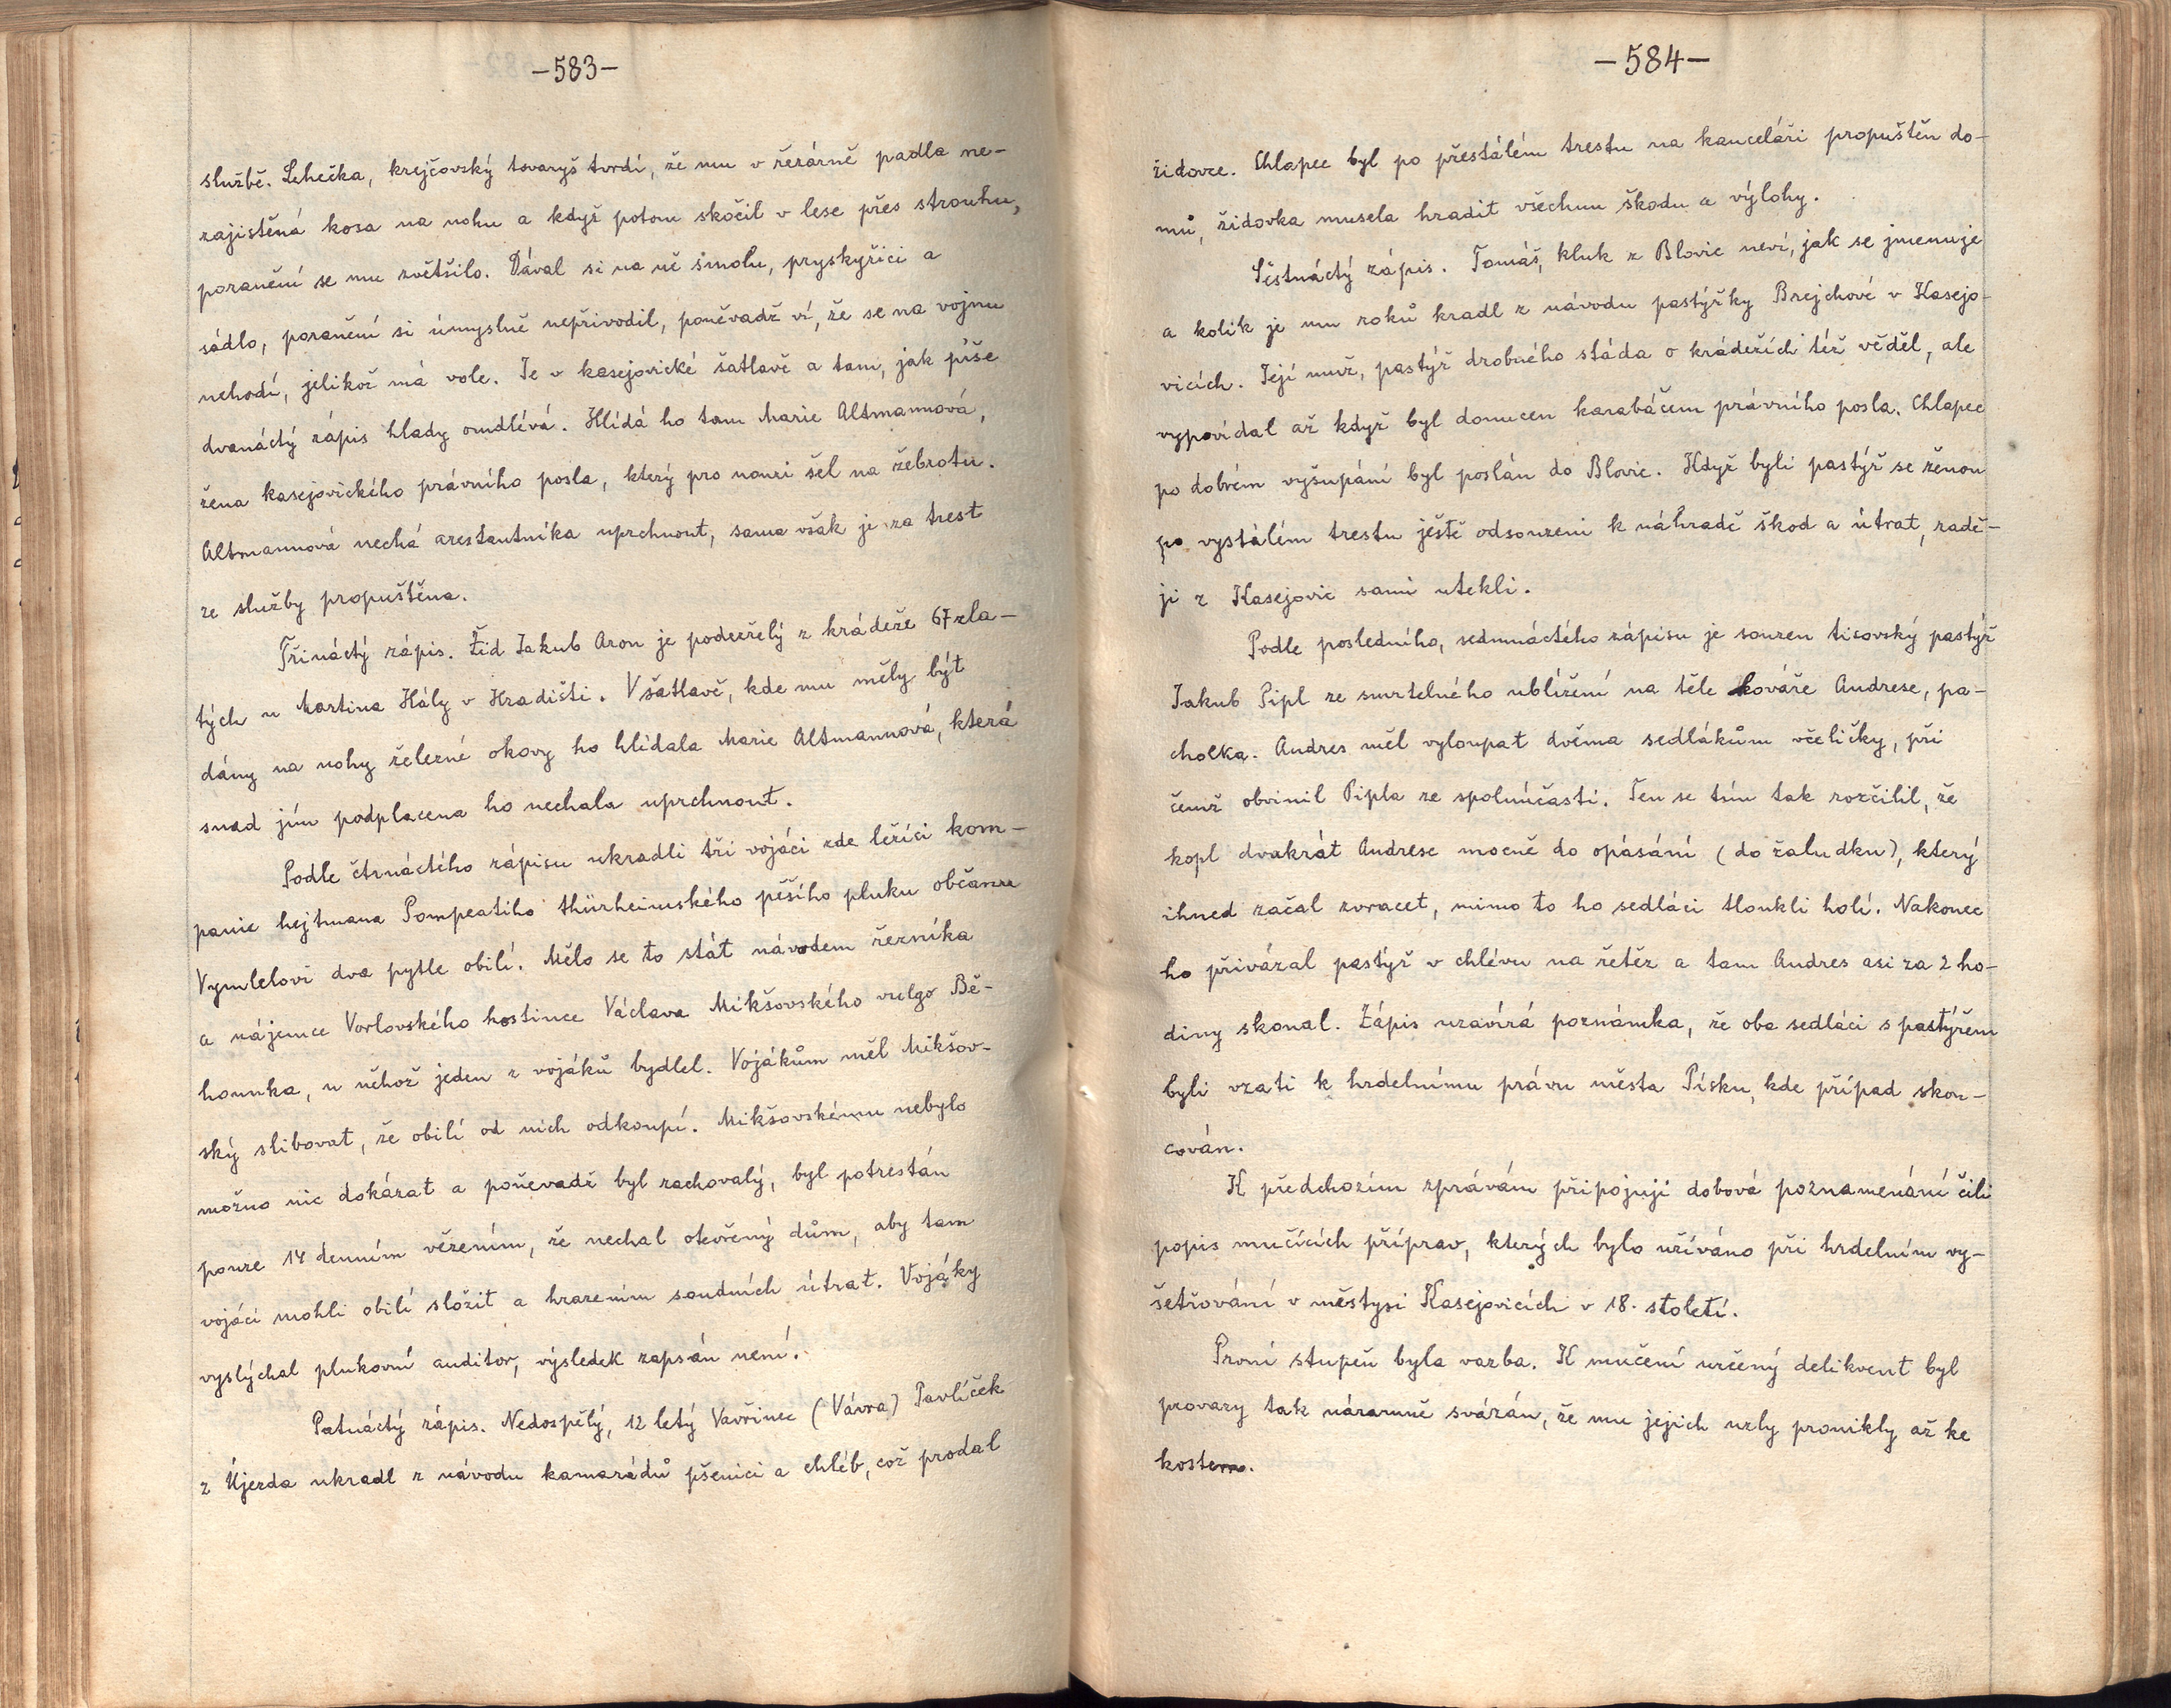 -583-
službě. Lehečka, krejčovský tovaryš tvrdí, že mu v řezárně padla ne-
zajistěná kosa na nohu a když potom skočil v lese přes strouhu,
poranění se mu zvětšilo. Dával si na ně smolu, pryskyřici a
sádlo, poranění si úmyslně nepřivodil, poněvadž ví, že se na vojnu
nehodí, jelikož má vole. Je v kasejovické šatlavě a tam, jak píše
dvanáctý zápis hlady omdlévá. Hlídá ho tam Marie Altmannová,
žena kasejovického právního posla, který pro nouzi šel na žebrotu.
Altmannová nechá arestantníka uprchnout, sama však je za trest
ze služby propuštěna.
Třináctý zápis. Žid Jakub Aron je podezřelý z krádeže 67 zla-
tých u Martina Hály v Hradišti. V šatlavě, kde mu měly být
dány na nohy železné okovy ho hlídala Marie Altmannová, která
snad jím podplacena ho nechala uprchnout.
Podle čtrnáctého zápisu ukradli tři vojáci zde ležící kom-
panie hejtmana Pompeatiho thürheimského pěšího pluku občanu
Vymlelovi dva pytle obilí. Mělo se to stát návodem řezníka
a nájemce Vorlovského hostince Václava Mikšovského vulgo Bě-
hounka, u něhož jeden z vojáků bydlel. Vojákům měl Mikšov-
ský slibovat, že obilí od nich odkoupí. Mikšovskému nebylo
možno nic dokázat a poněvadž byl zachovalý, byl potrestán
pouze 14 denním vězením, že nechal otevřený dům, aby tam
vojáci mohli obilí složit a hrazením soudních útrat. Vojáky
vyslýchal plukovní auditor, výsledek zapsán není.
Patnáctý zápis. Nedospělý, 12 letý Vavřinec (Vávra) Pavlíček
z Újezda ukradl z návodu kamarádů pšenici a chléb, což prodal
-584-
židovce. Chlapec byl po přestálém trestu na kanceláři propuštěn do-
mů, židovka musela hradit všechnu škodu a výlohy.
Šestnáctý zápis. Tomáš, kluk z Blovic neví, jak se jmenuje
a kolik je mu roků kradl z návodu pastýřky Brejchové v Kasejo-
vicích. Její muž, pastýř drobného stáda o krádežích též věděl, ale
vypovídal až když byl donucen karabáčem právního posla. Chlapec
po dobrém vyšupání byl poslán do Blovic. Když byli pastýř se ženou
po vystálém trestu ještě odsouzeni k náhradě škod a útrat, radě-
ji z Kasejovic sami utekli.
Podle posledního, sedmnáctého zápisu je souzen tisovský pastýř
Jakub Pipl ze smrtelného ublížení na těle kováře Andrese, pa-
cholka. Andres měl vyloupat dvěma sedlákům včeličky, při
čemž obvinil Pipla ze spoluúčasti. Ten se tím tak rozčilil, že
kopl dvakrát Andrese mocně do opásání (do žaludku), který
ihned začal zvracet, mimo to ho sedláci tloukli holí. Nakonec
ho přivázal pastýř v chlévu na řetěz a tam Andres asi za 2 ho-
diny skonal. Zápis uzavírá poznámka, že oba sedláci s pastýřem
byli vzati k hrdelnímu právu města Písku, kde případ skon-
cován.
K předchozím zprávám připojuji dobová poznamenání čili
popis mučících příprav, kterých bylo užíváno při hrdelním vy-
šetřování v městysi Kasejovicích v 18. století.
První stupeň byla vazba. K mučení určený delikvent byl
provazy tak náramně svázán, že mu jejich uzly pronikly až ke
kostem.